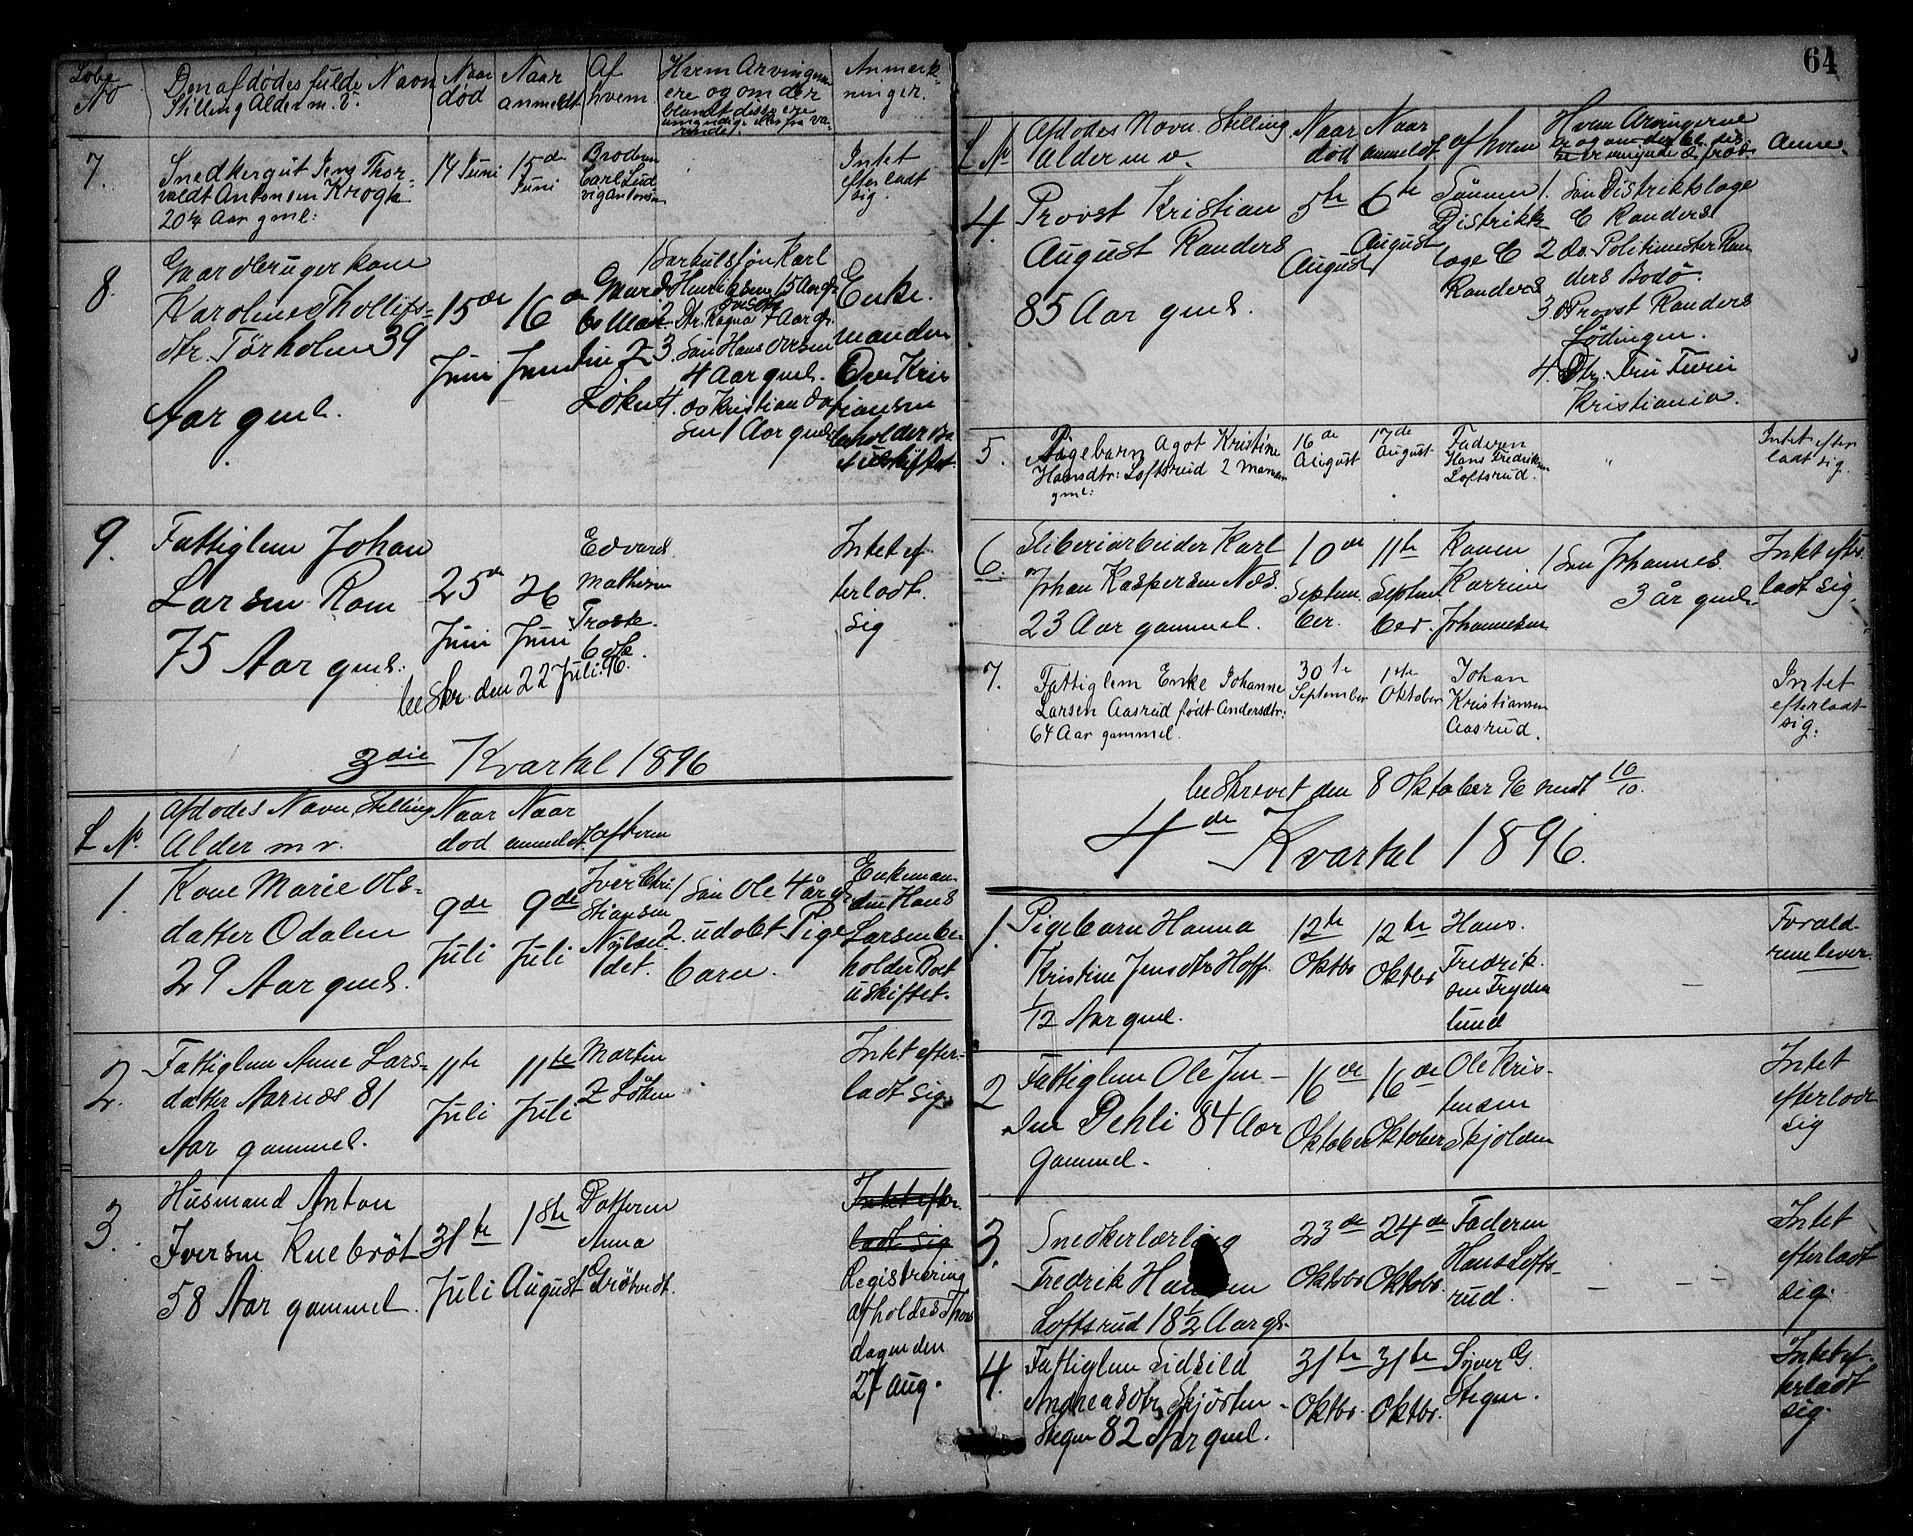 Løbe No
Den afdødes fulde Navn
Stilling Alder m. v.
Naar død
Naar anmeldt
Af hvem
Hvem Arvingerne
ere og om der
blandt disse ere
umyndige eller fra va-
rende.
Anmærk-
ninger.
7.
Snedkergut Jens Thor-
valdt Antonsen Krogh
20¼ Aar gml:
14 Juni
15de
Juni
Broderen
Carl Lud
vig Antonsen
Intet
efterladt
sig.
8.
Gaardbrugerkone
Karoline Thollefs-
dtr. Tørholen 39
Aar gml.
15de
Juni
16de
Juni
Gaard
Løken
Karl
Henriksen 15 Aar gl.
2 Dtr. Ragna 7 Aar gl.
3. Søn Hans Ovesen
4 Aar gml.
4. do Kristian Ov
sen 1 Aar gml.
Enke-
manden
Ove Kris
tiansen
beholder Bo
et uskiftet.
9.
Fattiglem Johan
Larsen Ram
75 Aar gml.
25de
Juni
26
Juni
Edvard
Mathisen
Intet ef-
terladt
sig
beskr. den 22 Juli. 96.
3die Kvartal 1896
L No.
Afdødes Navn Stilling
Alder m v.
Naar
død
Naar
anmeldt.
af hvem
1.
Kone Marie Ols-
datter Odalen
29 Aar gml.
9de
Juli
9de
Juli
Iver Chri
stiansen
det.
1 Søn Ole 4 år gl.
2. udøbt Pige
barn.
Enkeman-
den Hans
Larsen be-
holder Boet
uskiftet.
2.
Fattiglem Anne Lars-
datter Aarnæs 81
Aar gammel.
11te
Juli
11te
Juli
Martin
Z Løken
Intet efter-
ladt sig
3.
Husmand Anton
Iversen Knebrøt
58 Aar gammel.
31te
Juli
18te
August
Datteren
Anna
Grøtvedt.
Intet efter
ladt sig
Registrering
afholdes Thors
dagen den
27 Aug.
64
L No
Afdødes Navn. Stilling
Alder m v.
Naar
død
Naar
anmeldt.
af hvem
Hvem Arvingerne
er og om der bl. dis
se er umynde & frav
Anm.
4.
Provst Kristian
August Randers
85 Aar gml.
5te
August
6te
August
Sønnen
Distrikts
læge C
Randers
1. Søn Distriktslæge
C Randers
2 do. Politimester Ran
ders Bodø.
3 do Provst Randers
Lødingen.
4. Dtr. Fru
Kristiania.
5.
Pigebarn Agot Kristine
Hansdtr: Loftsrud 2 Maneder
gml:
16de
August
17de
August
Faderen
Hans Fredriksen
Loftsrud.
"
Intet efter
ladt sig.
6.
Sliberiarbeider Karl
Johan Kaspersen Næs
23 Aar gammel.
10de
Septem
ber.
11te
Septem
ber.
Konen
Karrine
Johannesen
1 Søn Johannes.
3 år gml.
Intet efter
ladt sig.
7.
Fattiglem Enke Johanne
Larsen Aasrud født Andersdtr:
64 Aar gammel.
30te
September
1ste
Oktober
Johan
Kristiansen
Aasrud.
Intet
efterladt
sig.
beskrevet den 8 Oktober 96 sendt 10/10.
4de Kvartal 1896.
1.
Pigebarn Hanna
Kristine Jensdtr Hoff.
1/12 Aar gml.
12te
Oktbr
12te
Oktbr
Hans.
Fredrik-
sen Fryden
lund
–
Foræld-
rene lever.
2
Fattiglem Ole Jen-
sen Dehli 84 Aar
Gammel.
16de
Oktober
16de
Oktober
Ole Kris-
tensen
Skjolden
Intet
efterladt
sig
3.
Snedkerlærling
Fredrik Hansen
Loftsrud 18½ Aar gl.
23de
Oktobr
24de
Oktobr.
Faderen
Hans Lofts-
rud.
– – –
Intet
efterladt
sig.
4.
Fattiglem Sidsild
Andreasdtr Skjørten-
Stegen 82 Aar gml.
31te
Oktbr.
31te
Oktbr.
Syver G.
Stegen.
Intet ef-
terladt
sig.